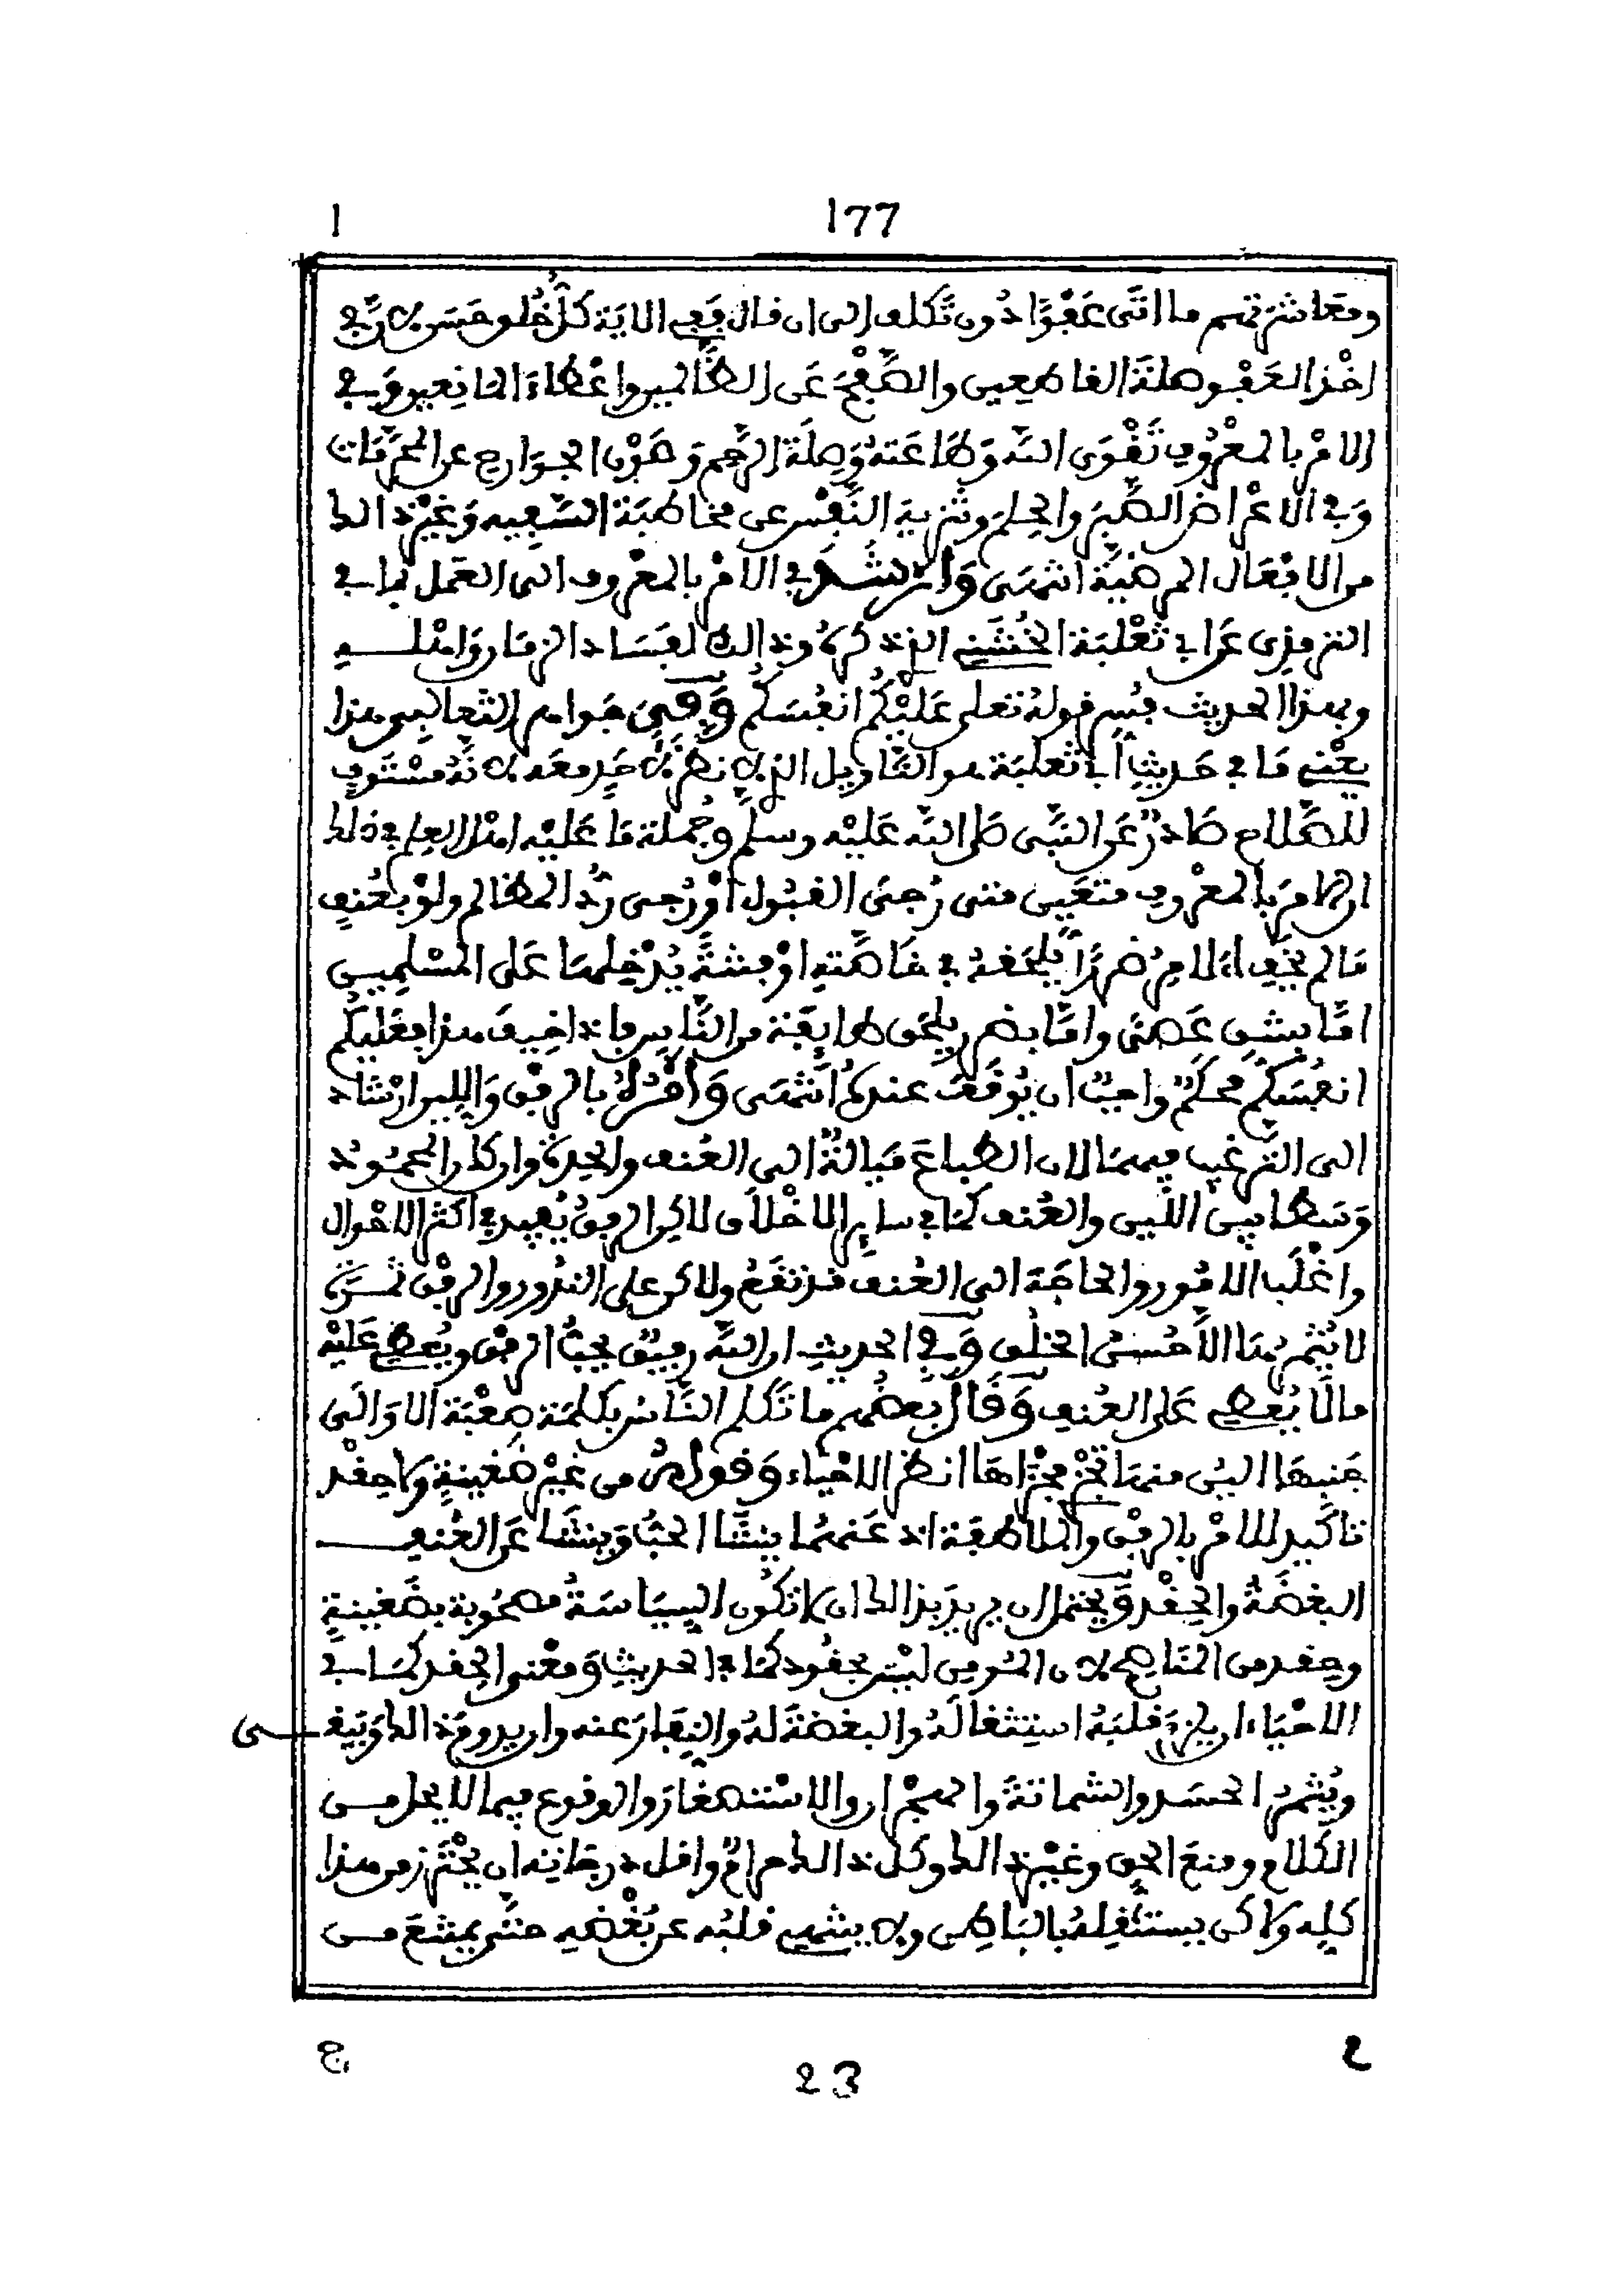 177 1
ومعاشرتهم ما اتى عفوا دون تكلف الى ان قال ففى الاية كل خلق حسن لان فى
اخذ العفو صلة القاطعين والصفح عن الظالمين واعطاء المانعين وفى
الامر بالمعروف تقوى الله وطاعته وصلة الرحم وصون الجوارح عن المحرمات
وفى الاعراض الصبر والحلم وتنزيه النفس عن مخاطبة السفيه وغير ذالك
من الافعال المرضية انتهى وارشد فى الامر بالمعروف الى العمل بما فى
الترمذى عن ابى ثعلبة الخشنى الذ ذكره وذالك لفساد الزمان واهله
وبهذا الحديث فسر قوله تعلى عليكم انفسكم وفى جواهر الثعالبى هذا
يعنى ما فى حديث أبى ثعلبة هو التاويل الذ لا نظر لاحد معه لانه مستوف
للصلاح صادر عن النبى صلى الله عليه وسلم وجملة ما عليه اهل العلم فى ذلك
ان الامر بالمعروف متعين متى رجى القبول أو رجى رد المظالم ولو بعنف
ما لم يخف الامر ضررا يلحقه فى خاصته او فتنة يدخلها على المسلمين
اما بشق عصى واما بضر يلحق طايفة من الناس فاذا خيف هذا فعليكم
انفسكم محكم واجب ان يوقف عندها انتهى وامره بالرفق واللين ارشاد
الى الترغيب فيهما لان الطباع ميالة الى العنف والحدة وان كان المحمود
وسطا بين اللين والعنف كما فى ساير الاخلاق لاكن الرفق يفيد فى اكثر الاحوال
واغلب الامور والحاجة الى العنف قد تقع ولاكن على الندور والرفق ثمرة
لا يثمرها الا حسن الخلق وفى الحديث ان الله رفيق يحب الرفق ويعطى عليه
ما لا يعطى على العنف وقال بعضهم ما تكلم الناس بكلمة صعبة الا والى
جنبها الين منها تجر مجراها انظر الاحياء وقوله من غير ضغينة ولا حقد
تاكيد للامر بالرفق والملاطفة اذ عنهما ينشا الحب وينشا عن العنف
البغضة والحقد ويحتمل ان يريد بذالك ان لا تكون السياسة مصحوبة بضغينة
وحقد من الناصح لان المومن ليس بحقود كما فى الحديث ومعنى الحقد كما فى
الاحياء ان يلزم قلبه استثقاله والبغضة له والنفار عنه وان يدوم ذالك ويبقى
ويثمر الحسد والشماتة والهجران والاستصغار والوقوع فيما لا يحل من
الكلام ومنع الحق وغير ذالك وكل ذالك حرام واقل درجاته ان يحترز من هذا
كله ولاكن يستثقله بالباطن ولا ينتهى قلبه عن بغضه حتى يمتنع من
2 ج
23